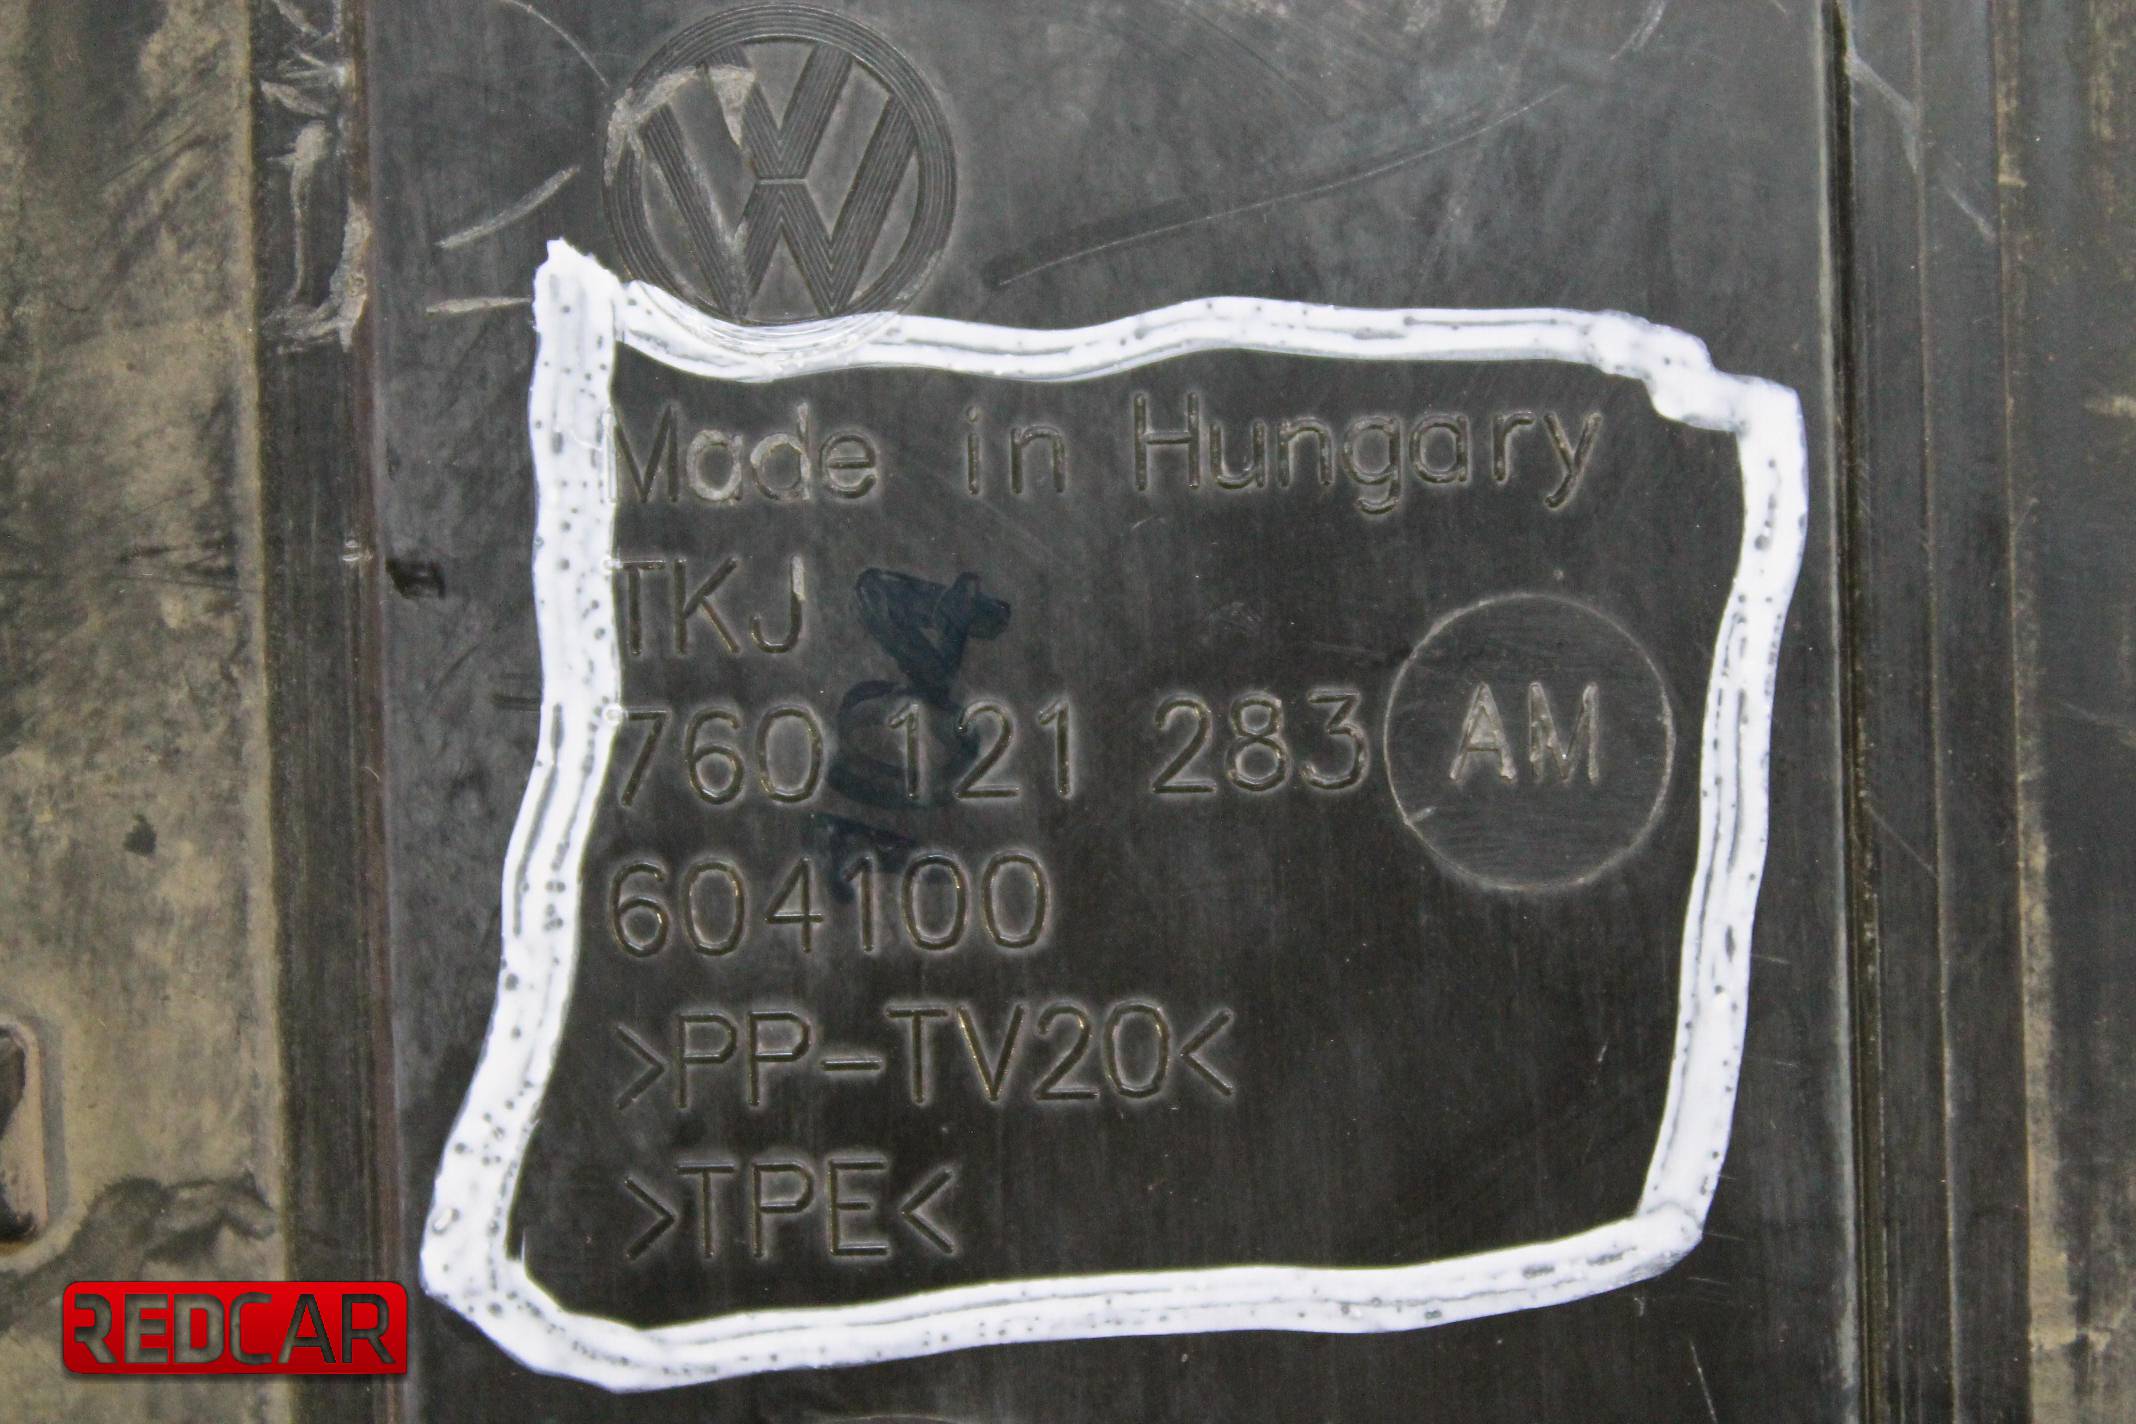 Made in Hungary
TKJ
760 121 283 AM
604100
>PP-TV20<
>TPE<
REDCAR